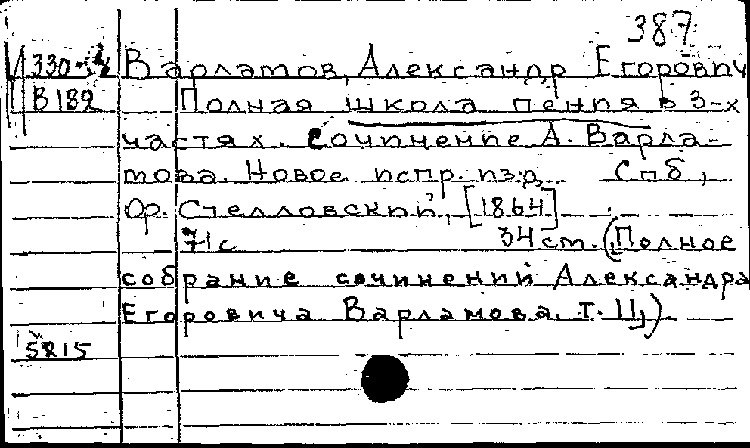 387
Варламов, Александр Егорович
В 182
Полная школа пения в 3-х
частях. Сочинение А. Варла-
това. Новое испр. изд. Спб,
Фр. Стелловский, [1864]
71с 34 ст. (Полное
собрание сочинений Александра
Егоровича Варламова. Т. 11,)
5815